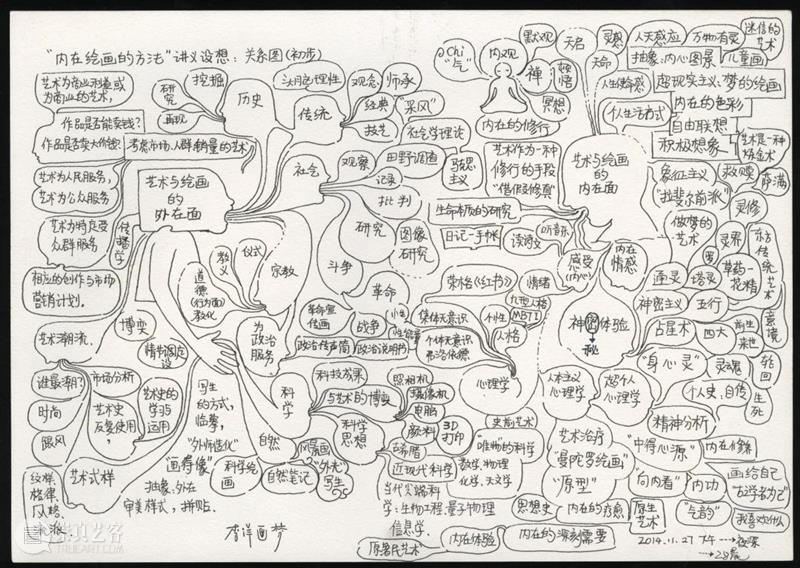 "内在绘画的方法"讲义设想：关系图(初步)
艺术为商业利益或
为商业的艺术，
挖掘
研究
再现
历史
传统
头用它理性
观念
师承
经典
"采风"
技艺
社会学理论
作品是否能卖钱?
作品是否卖大价钱?
考虑市场、人群、销量的艺术
艺术为人民服务，
艺术为公众服务
艺术与绘画
的
外在面
社会
观察
田野调查
记录
批判
研究
图像
研究
斗争
革命
艺术为特定受
众群服务
传播学
相应的创作与市场
营销计划.
教义
仪式
宗教
道德
(行为面)
教化
为
政治
服务.
革命宣
传画
战争
政治传声筒
政治说明书
博奕
情节调度
设
艺术潮流.
谁最潮?
时尚
跟风
市场分析
艺术史
反复使用，
艺术史的
学习与
运用
艺术式样
纹样
格律
风格.
写生
的方式,
临摹,
"外师造化"
"画得像"
抽象:外在
审美样式，拼贴.
科学绘
画
自然
自然笔记
风景画
"外光"
写生
科学
科技成果
与艺术的博奕
照相机
摄像机
电脑
颜料
3D
打印
科学
思想
古希腊
史前艺术
"唯物"的科学
近现代科学
数学,物理
化学,天文学
当代尖端科
学:生物工程,量子物理
信息学.
原著民艺术
内在体验
内在的深刻需要
李洋画梦
Chi
"气"
内观
默观
天启
灵感
禅
顿悟
冥想
内在的修行
天命
人天感应
万物有灵
迷信的
艺术
抽象:内心图景
儿童画
人生使命感
超现实主义:梦的绘画
个人生活方式
内在的色彩
自由联想
积极想象
艺术是一种
炼金术
艺术作为一种
修行的手段
"借假修真"
艺术与绘画
的
内在面
象征主义
"拉斐尔前派"
救赎
生命本质的研究
日记-手帐
读诗文
听音乐
感受
(内心)
内在
情感
做梦的
艺术
灵修
灵界
东方
传统
艺术
通灵
塔罗
草药-
花精
意境
神密主义
五行
占星术
四大
前生
来世
轮回
生死
荣格《红书》
情绪
九型人格
MBTI
集体无意识
个性
人格
个体无意识
弗洛依德
心理学
神密体验
秘
"身心灵"
灵魂
人本主义
心理学
超个人
心理学
个人史,自传
精神分析
艺术治疗
"曼陀罗绘画"
"原型"
"中得心源"
内在修炼
"向内看"
内功
画给自己
"古学者为己"
思想史
内在的疗愈
原生
艺术
"气韵"
我喜欢什么
2014.11.27 下午→夜深
→28晨
艺客
TRUEART.COM